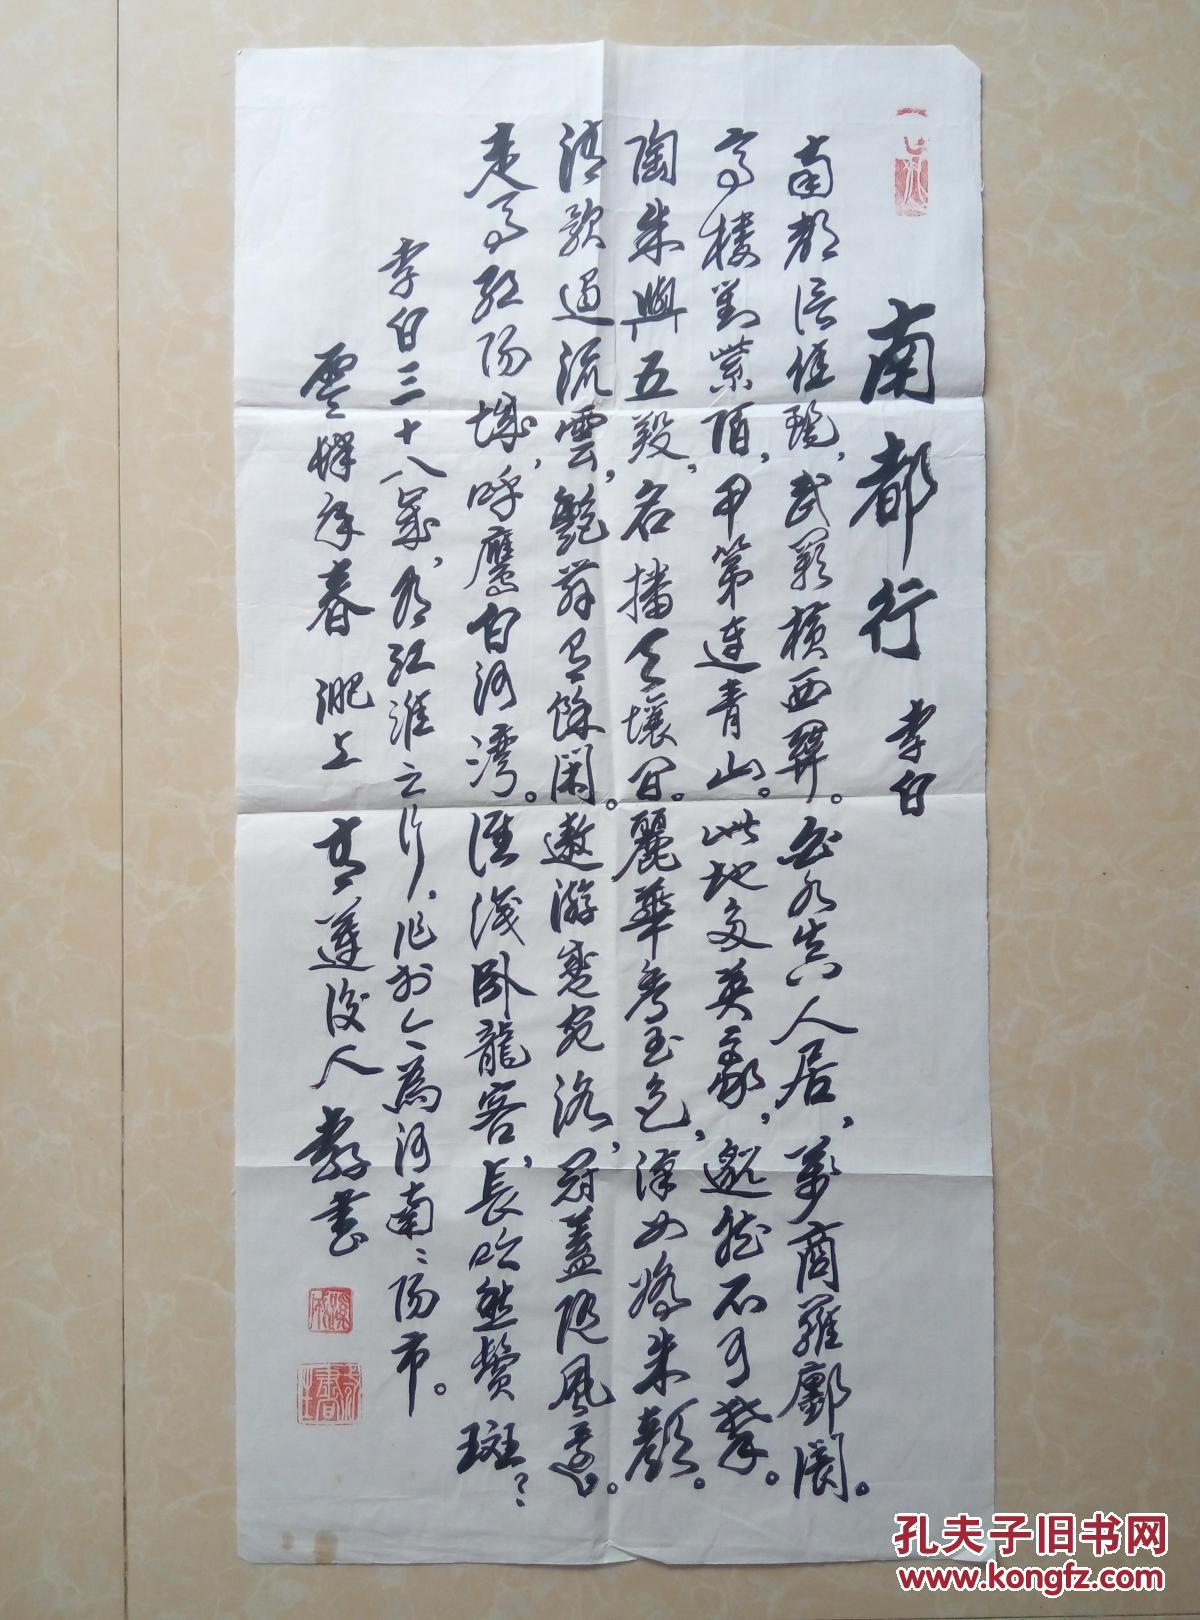 南都行 李白
南都信佳麗，武闕橫西關。白水真人居，萬商羅鄽闤。
高樓對紫陌，甲第連青山。此地多英豪，邈然不可攀。
陶朱與五羖，名播天壤間。麗華秀玉色，漢女嬌朱顏。
清歌遏流雲，艷舞有餘閑。遨游盛宛洛，冠蓋隨風還。
走馬紅陽城，呼鷹白河灣。誰識卧龍客，長吟愁鬢斑？
李白三十八歲，有江淮之行，作於今為河南南陽市。
春 淝上 青蓮後人 書
孔夫子旧书网
www.kongfz.com